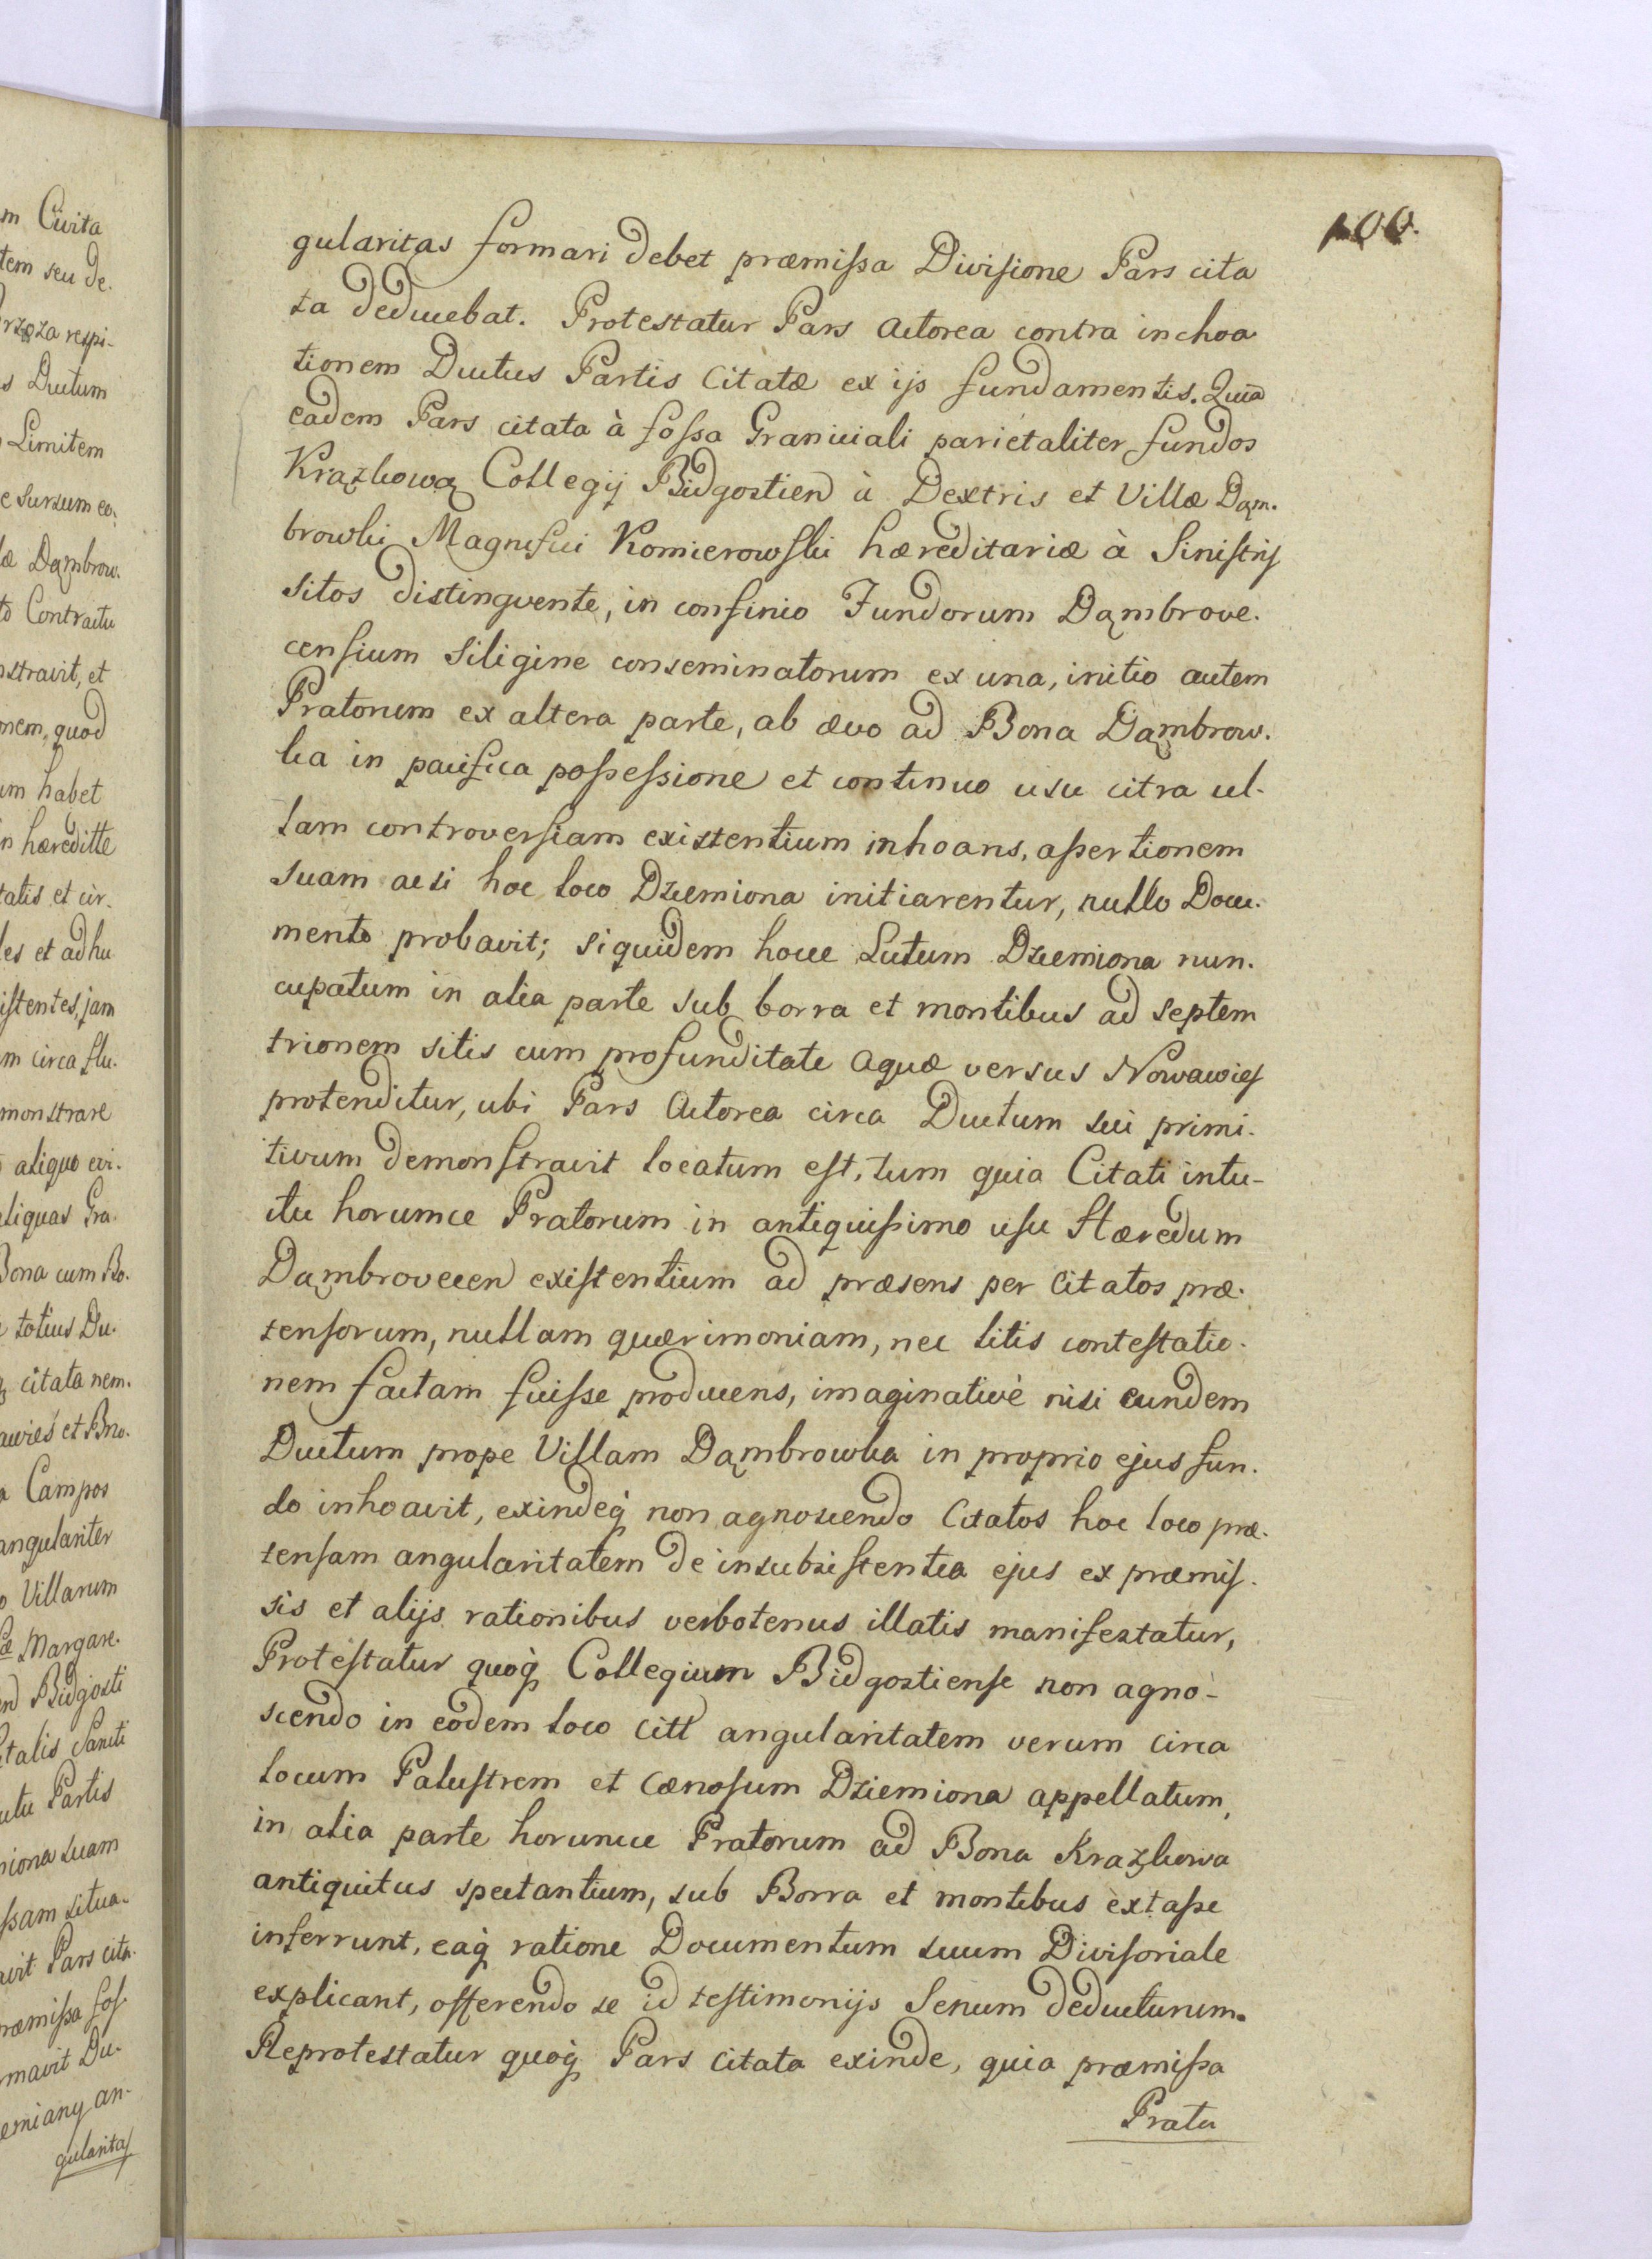 m Civita
tem seu de.
respi-
s Ductum
Limitem
e sursum
læ Dąmbrow.
to Contractu
nstravit, et
nem, quod
um habet
n hæreditte
tatis et cir.
les et adhu
istentes, jam
m circa flu.
monstrare
aliquo evi.
aliquas Gra.
Bona cum Bo.
totius Du.
citata nem.
awies et Bno.
a Campos
angulariter
o Villarum
Margare.
Bidgosti
talis Sancti
Partis
miona suam
ssam situa.
avit Pars cita.
ræmissa fos.
rmavit Du.
emiany an-
gularitas
100.
gularitas formari debet præmissa Divisione Pars cita
ta deducebat. Protestatur Pars Actorea contra inchoa
tionem Ductus Partis Citatæ ex ijs fundamentis. Quia
eadem Pars citata à fossa Graniciali parietaliter fundos
Krązkowa Collegij Bidgostien à Dextris et Villæ Dąm.
browki Magnifici Komierowski hæreditariæ à Sinistris
sitos distingvente, in confinio Fundorum Dąmbrove.
censium siligine conseminatorum ex una, initio autem
Pratorum ex altera parte, ab ævo ad Bona Dąmbrow.
ka in pacifica possessione et continuo usu citra ul.
lam controversiam existentium inhoans, assertionem
suam acsi hoc loco Dziemiona initiarentur, nullo Docu.
mento probavit; siquidem hocce Lutum Dziemiona nun.
cupatum in alia parte sub borra et montibus ad septem
trionem sitis cum profunditate Aquæ versus Nowawies
protenditur, ubi Pars Actorea circa Ductum sui primi.
tivum demonstravit locatum est, tum quia Citati intu-
itu horumce Pratorum in antiquissimo usu Hæredum
Dąmbrovecen existentium ad præsens per Citatos præ.
tensorum, nullam quærimoniam, nec litis contestatio.
nem factam fuisse producens, imaginativè nisi eundem
Ductum prope Villam Dąmbrowka in proprio ejus fun.
do inhoavit, exindeq́ non agnoscendo Citatos hoc loco præ.
tensam angularitatem de insubsistentia ejus ex præmis.
sis et alijs rationibus verbotenus illatis manifestatur,
Protestatur quoq́ Collegium Bidgostiense non agno-
scendo in eodem loco Citt angularitatem verum circa
locum Palustrem et Cænosum Dziemiona appellatum,
in alia parte horumce Pratorum ad Bona Krązkowa
antiquitus spectantium, sub Borra et montibus extasse
inferrunt, eaq́ ratione Documentum suum Divisoriale
explicant, offerendo se id testimonijs Senum deducturum.
Reprotestatur quoq́ Pars Citata exinde, quia præmissa
Prata